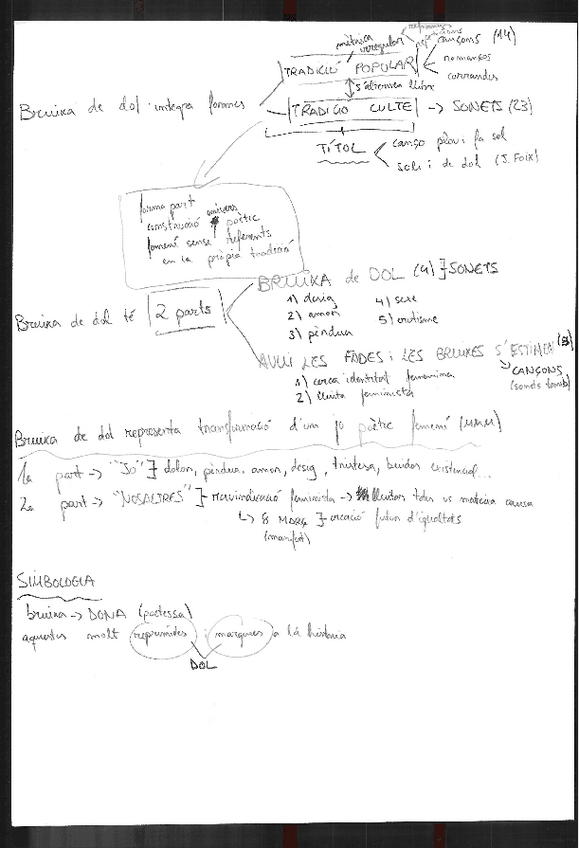 mètrica irregular
cançons (14)
TRADICIÓ POPULAR
romanços
corrandes
s'alternen llibre
Bruixa de dol integra formes
TRADICIÓ CULTE -> SONETS (23)
TÍTOL
cançó plou i fa sol
sol i de dol (J. Foix)
forma part
construcció univers poètic
femení sense referents
en la pròpia tradició
BRUIXA de DOL (4) ] SONETS
Bruixa de dol té 2 parts
1) desig 4) sexe
2) amor 5) erotisme
3) pèrdua
AVUI LES FADES i LES BRUIXES S'ESTIMEN
1) cerca identitat femenina
2) lluita feminista
CANÇONS
(sonets també)
Bruixa de dol representa transformació d'un jo poètic femení (MMM)
1a part -> "JO" ] dolor, pèrdua, amor, desig, tristesa, buidor existencial...
2a part -> "NOSALTRES" ] reivindicació feminista -> lluitar totes us mateixa causa
8 MARÇ ] creació futur d'igualtats
(manifest)
SIMBOLOGIA
bruixa -> DONA (poetessa)
aquestes molt reprimides i marques a la història
DOL